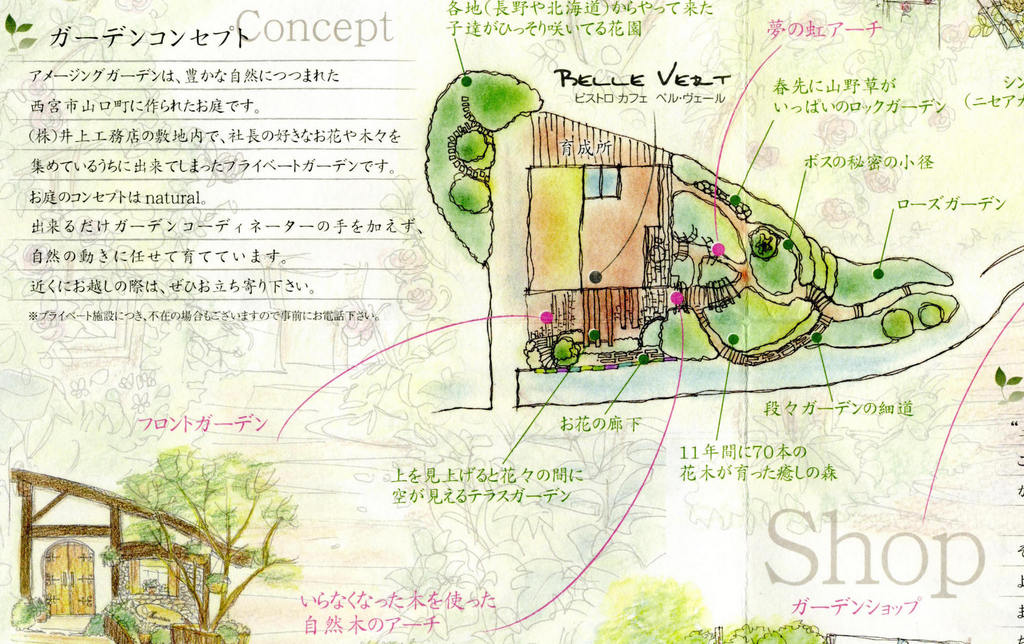 Concept
ガーデンコンセプト
アメージングガーデンは、豊かな自然につつまれた
西宮市山口町に作られたお庭です。
(株)井上工務店の敷地内で、社長の好きなお花や木々を
集めているうちに出来てしまったプライベートガーデンです。
お庭のコンセプトはnatural。
出来るだけガーデンコーディネーターの手を加えず、
自然の動きに任せて育てています。
近くにお越しの際は、ぜひお立ち寄り下さい。
※プライベート施設につき、不在の場合もございますので事前にお電話下さい。
各地(長野や北海道)からやって来た
子達がひっそり咲いてる花園
BELLE VERT
ビストロ カフェ ベル・ヴェール
育成所
夢の虹アーチ
春先に山野草が
いっぱいのロックガーデン
ボスの秘密の小径
ローズガーデン
シン
(ニセアカ
フロントガーデン
お花の廊下
段々ガーデンの細道
上を見上げると花々の間に
空が見えるテラスガーデン
11年間に70本の
花木が育った癒しの森
いらなくなった木を使った
自然木のアーチ
Shop
ガーデンショップ